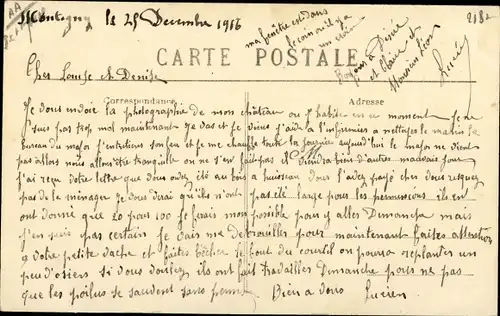 Montagny le 25 Decembre 1916
ma fenêtre est dans
le coin ou il y a
un
2182
AA
CARTE POSTALE
Bonjour à Désiré
et Claire et
Monsieur Léon
Lucien
Cher Louise et Denise
Correspondance
Adresse
Je vous envoie la photographie de mon château ou j'habite en ce moment Je ne
suis pas trop mal maintenant Je et je viens d'aide à l'infirmier a nettoyer le matin le
bureau du major j'entretiens son feu et je me chauffe toute la journée aujourd'hui le major ne vient
pas allons nous allons être tranquille on ne s'en fait pas il viendra bien d'autres mauvais jour
j'ai reçu votre lettre que vous avez été au bois a buisseau vous l'avez payé cher vous risquez
pas de le ménager Je vous dirai qu'ils n'ont pas été large pour les permissions ils en
ont donné que 20 pour 100 Je ferais mon possible pour y aller Dimanche mais
j'en suis pas certain Je vais me debrouiller pour maintenant faites attention
a votre petite vache et faites bêcher le bout du courtil on pourra replanter un
peu d'osiers si vous voulez, ils ont fait travailler Dimanche pour ne pas
que les poilus se sauvent sans perme Bien a vous Lucien